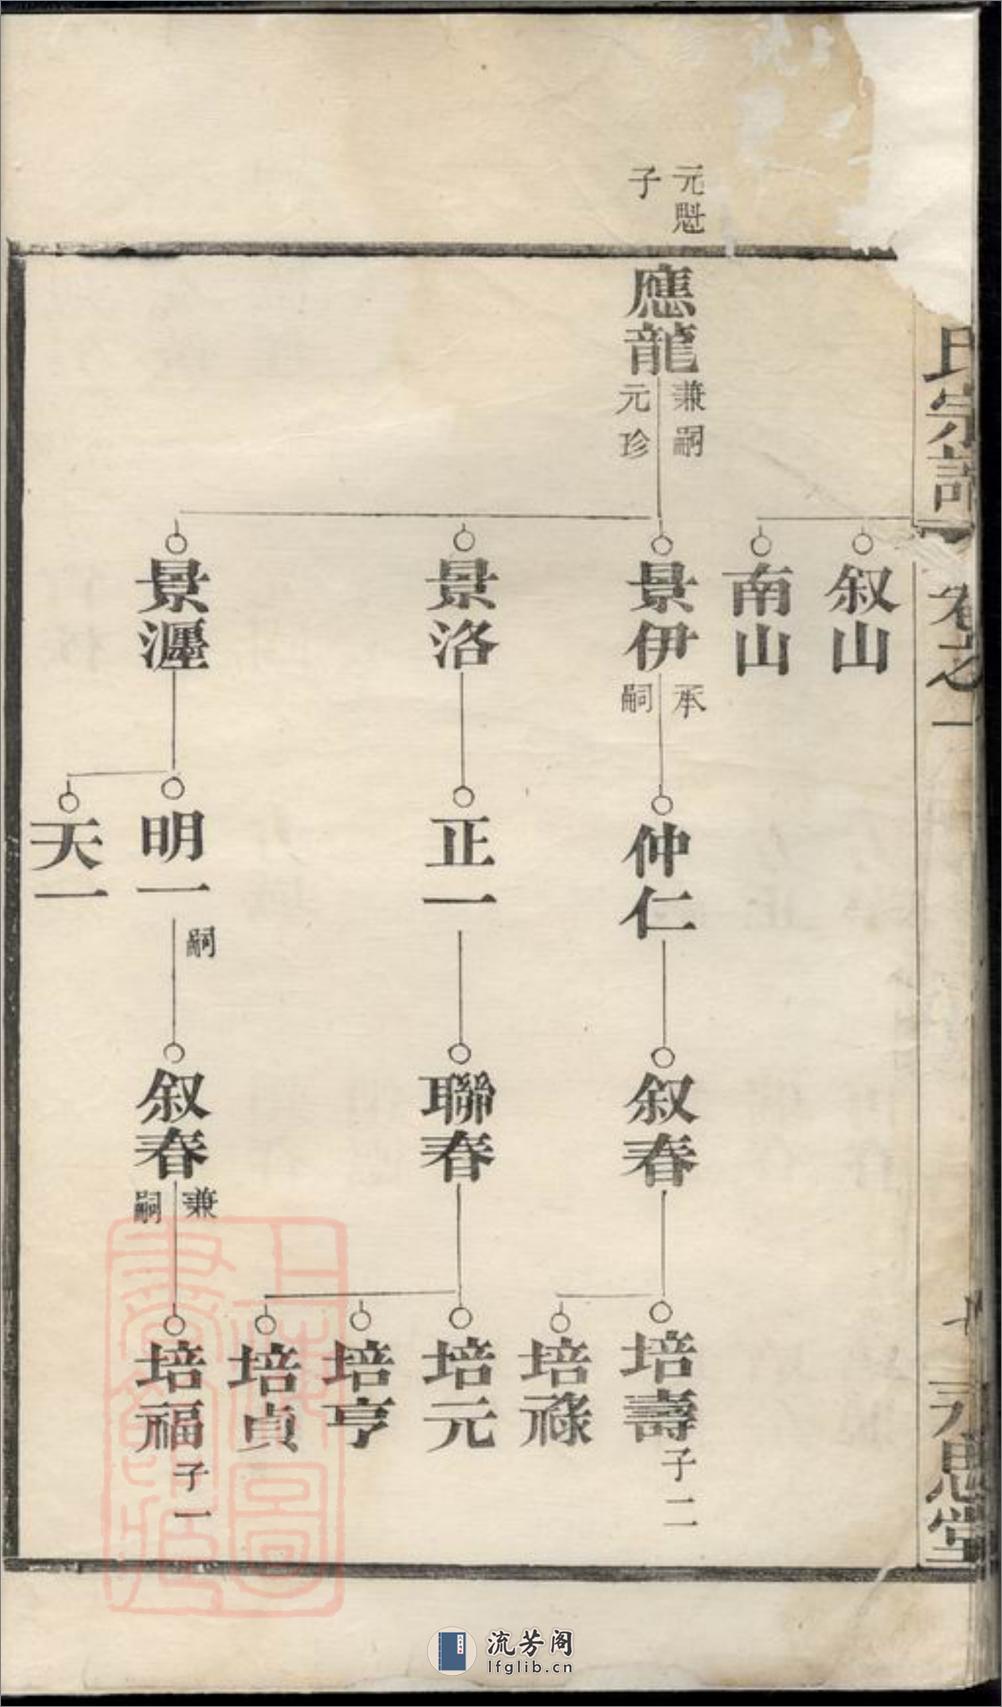 氏宗譜
卷之一
永思堂
元魁
子
應龍
兼嗣
元珍
叙山
南山
景伊
承
嗣
景洛
景瀍
仲仁
正一
明一
嗣
天一
叙春
聯春
叙春
兼
嗣
培壽
子二
培祿
培元
培亨
培貞
培福
子一
上海圖
書館藏
流芳阁
lfglib.cn